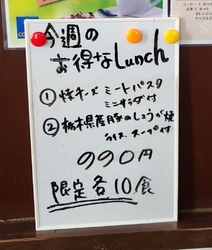 今週の
お得なLunch
① 焼チーズミートパスタ
ミニサラダ付
② 栃木県産豚のしょうが焼
ライス スープ付
990円
限定各10食